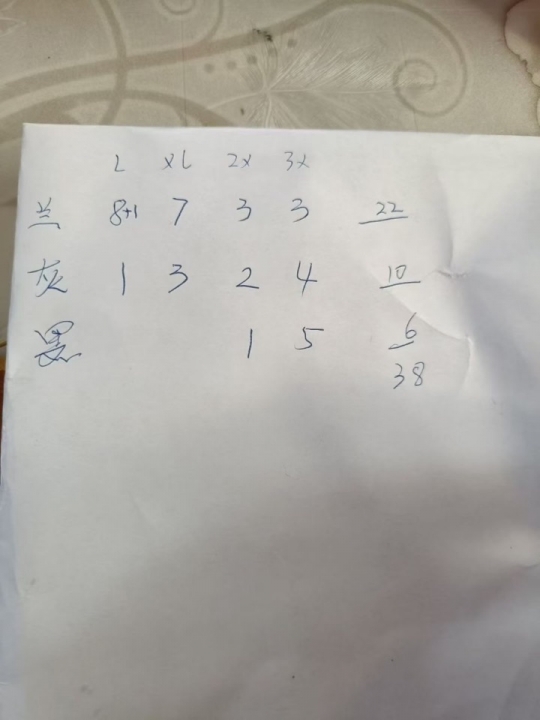 L XL 2X 3X
兰 8+1 7 3 3 22
灰 1 3 2 4 10
黑 1 5 6
38